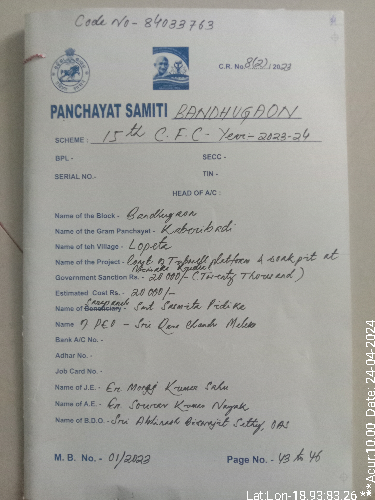 Code No - 84033763
C.R. No. 8(2)/2023
PANCHAYAT SAMITI BANDHUGAON
SCHEME : 15th C.F.C - Year - 2023-24
BPL - SECC -
SERIAL NO.- TIN -
HEAD OF A/C :
Name of the Block - Bandhugaon
Name of the Gram Panchayat - Kaberibadi
Name of teh Village - Lopeta
Name of the Project - Const of T/bowell platform & soak pit at
Government Sanction Rs. - 20000/- (Twenty Thousand)
Estimated Cost Rs.- 20000/-
Sarapanch
Name of Beneficiary - Smt Sasmita Pidika
Name of PEO - Sri Chandr
Bank A/C No. -
Adhar No. -
Job Card No. -
Name of J.E. - Er Kumar Sahu
Name of A.E. - Er Sourav Kumar Nayak
Name of B.D.O. - Sri Abhinash Biswajit OAS
M. B. No. - 01/2023 Page No. - 43 to 46
Lat:Lon-18.93:83.26 ***Acur:10.00 Date: 24-04-2024